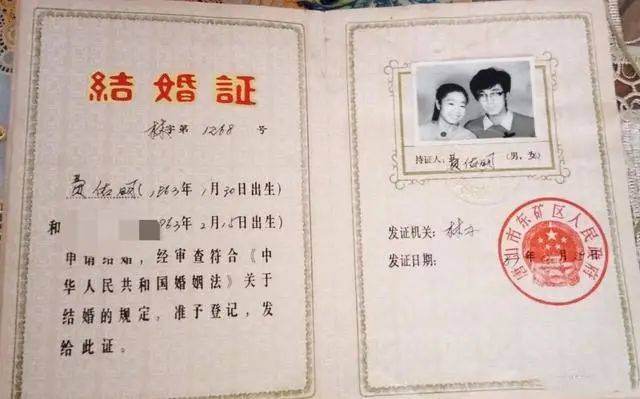 結婚証
字第1268号
佑明(1963年1月30日出生)
和 1963年2月15日出生)
申请结婚,经审查符合《中
华人民共和国婚姻法》关于
结婚的规定,准予登记,发
给此证。
持证人: 佑明(男、女)
发证机关:
发证日期: 年 月 日
唐山市东矿区人民政府